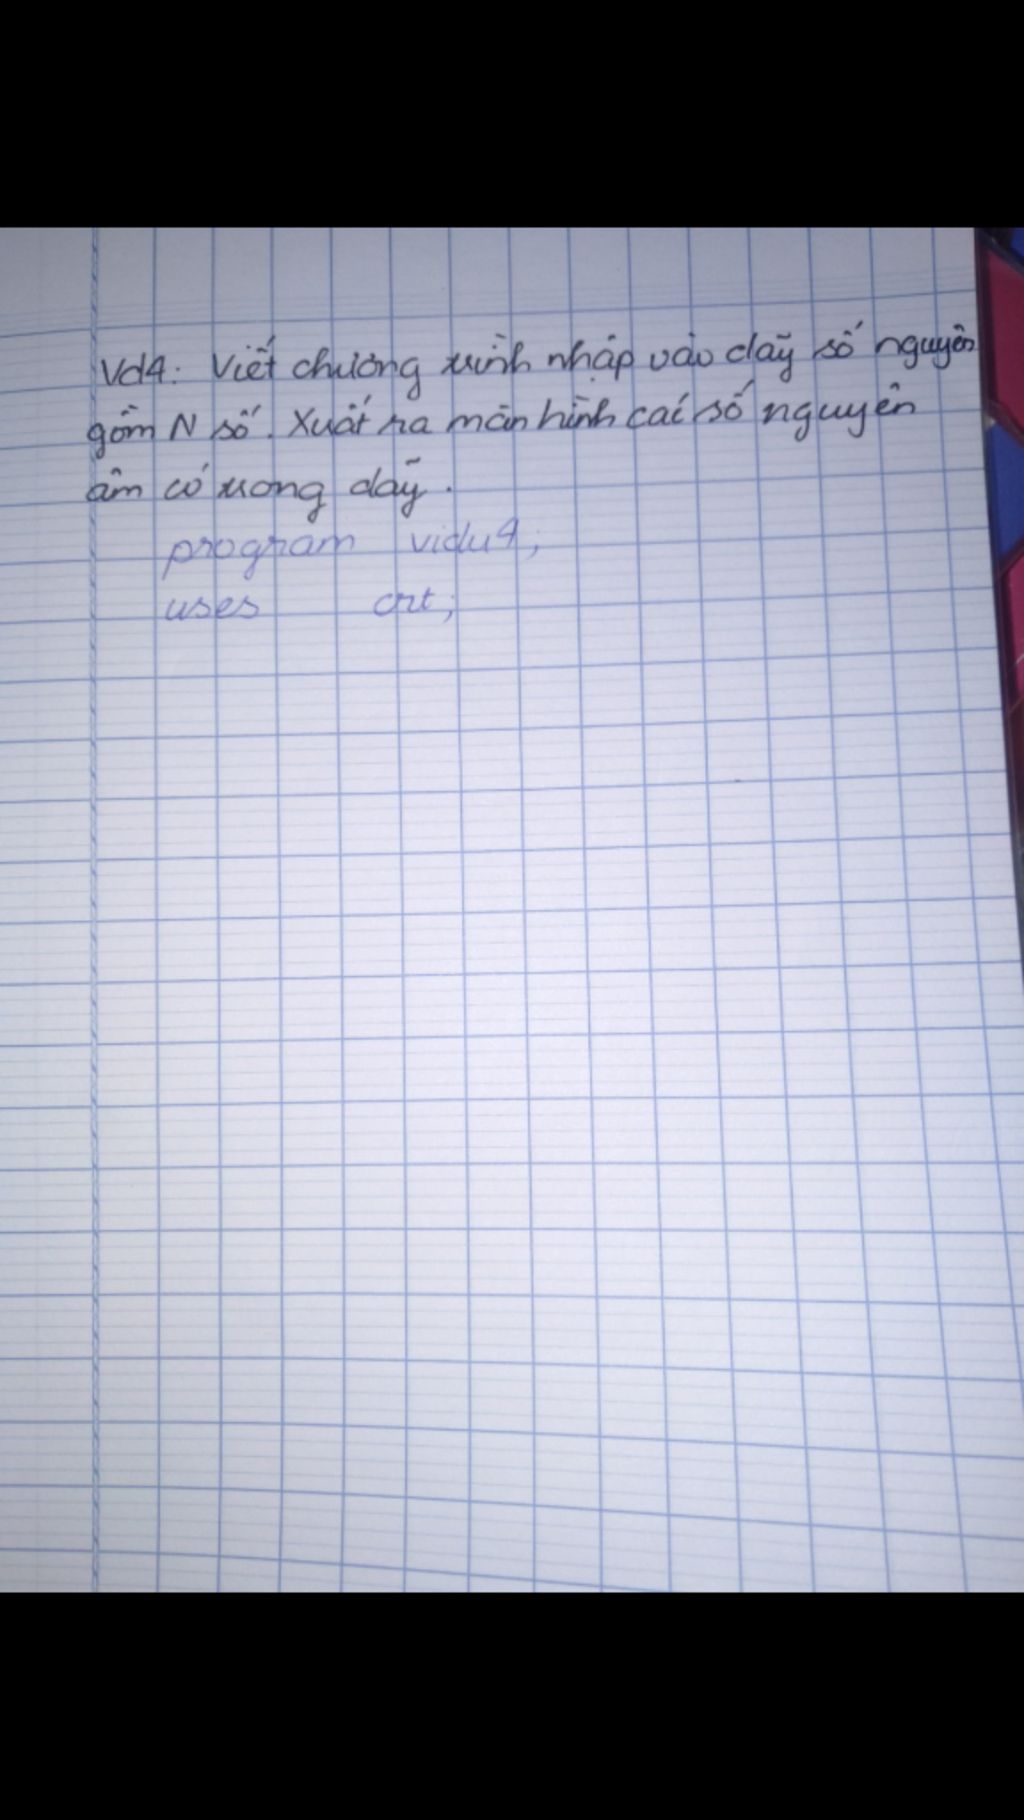 Vd4: Viết chương trình nhập vào dãy số nguyên
gồm N số. Xuất ra màn hình các số nguyên
âm có trong dãy.
program vidu4;
uses crt;